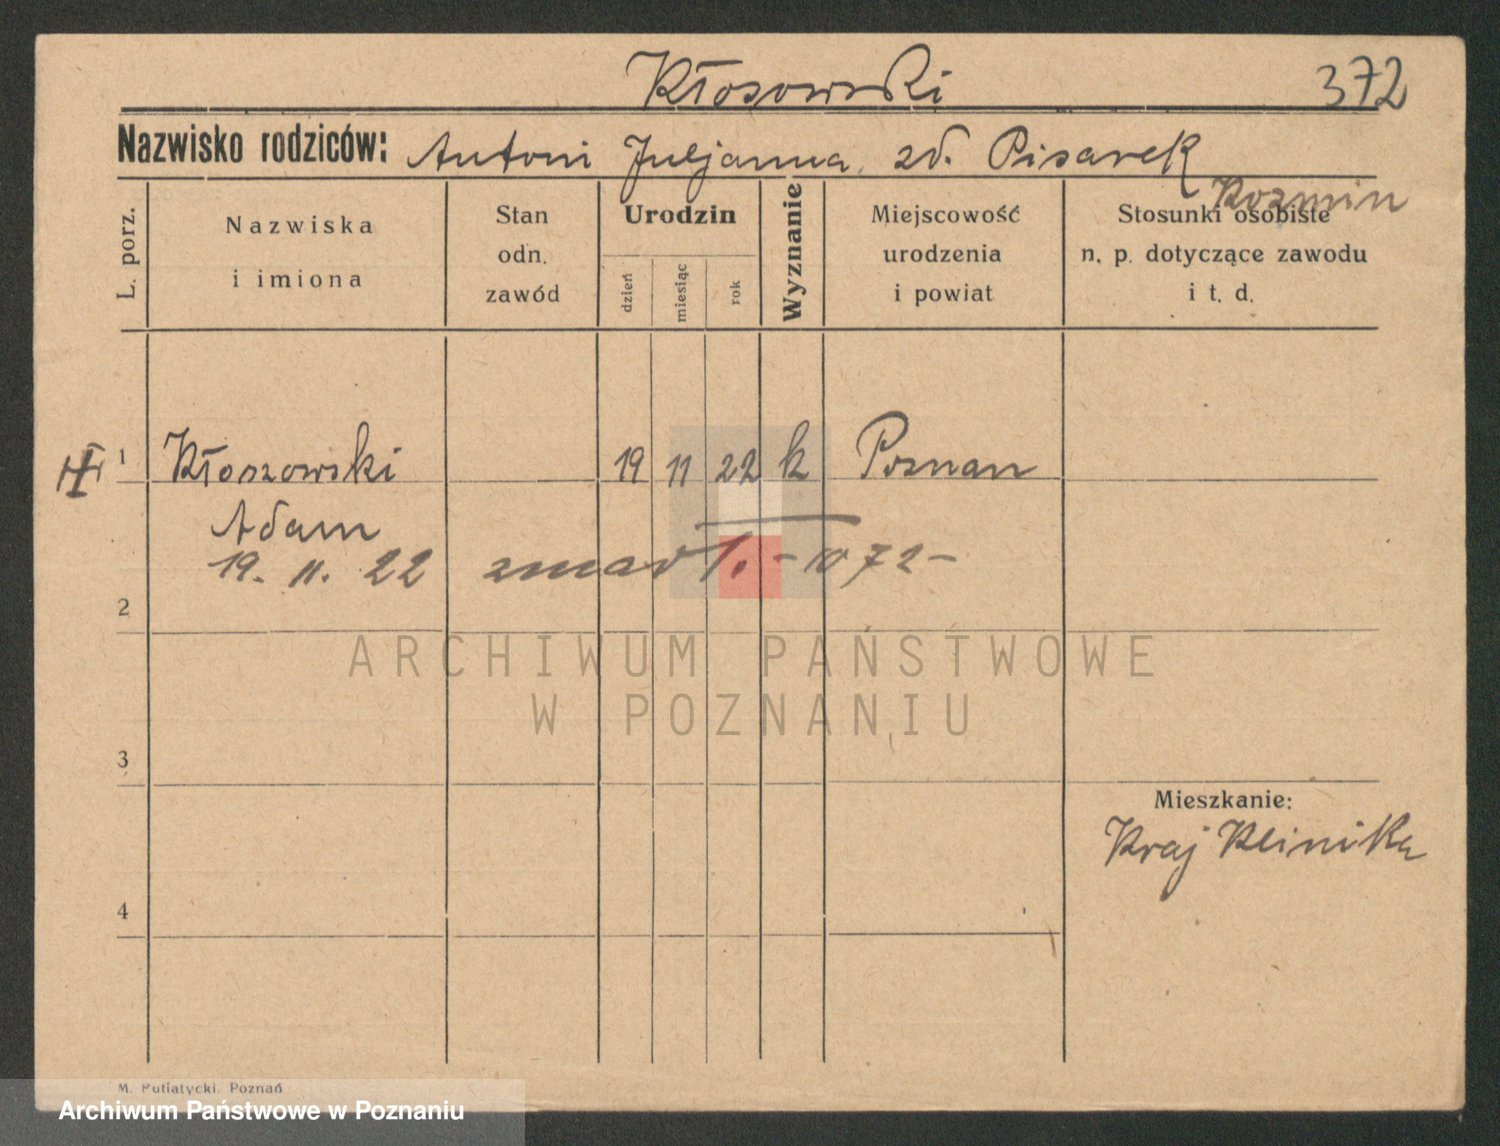 Kłosowski 372
Nazwisko rodziców: Antoni Juljanna zd. Pisarek
Kozmin
L. porz.
Nazwiska
i imiona
Stan
odn.
zawód
Urodzin
dzień
miesiąc
rok
Wyznanie
Miejscowość
urodzenia
i powiat
Stosunki osobiste
n. p. dotyczące zawodu
i t. d.
1 Kłoszowski 19 11 22 k Poznan
Adam
19. 11. 22 zmarł. - 1072 -
2
ARCHIWUM PAŃSTWOWE
W POZNANIU
3
Mieszkanie:
Kraj Klinika
4
M. Putiatycki, Poznań
Archiwum Państwowe w Poznaniu